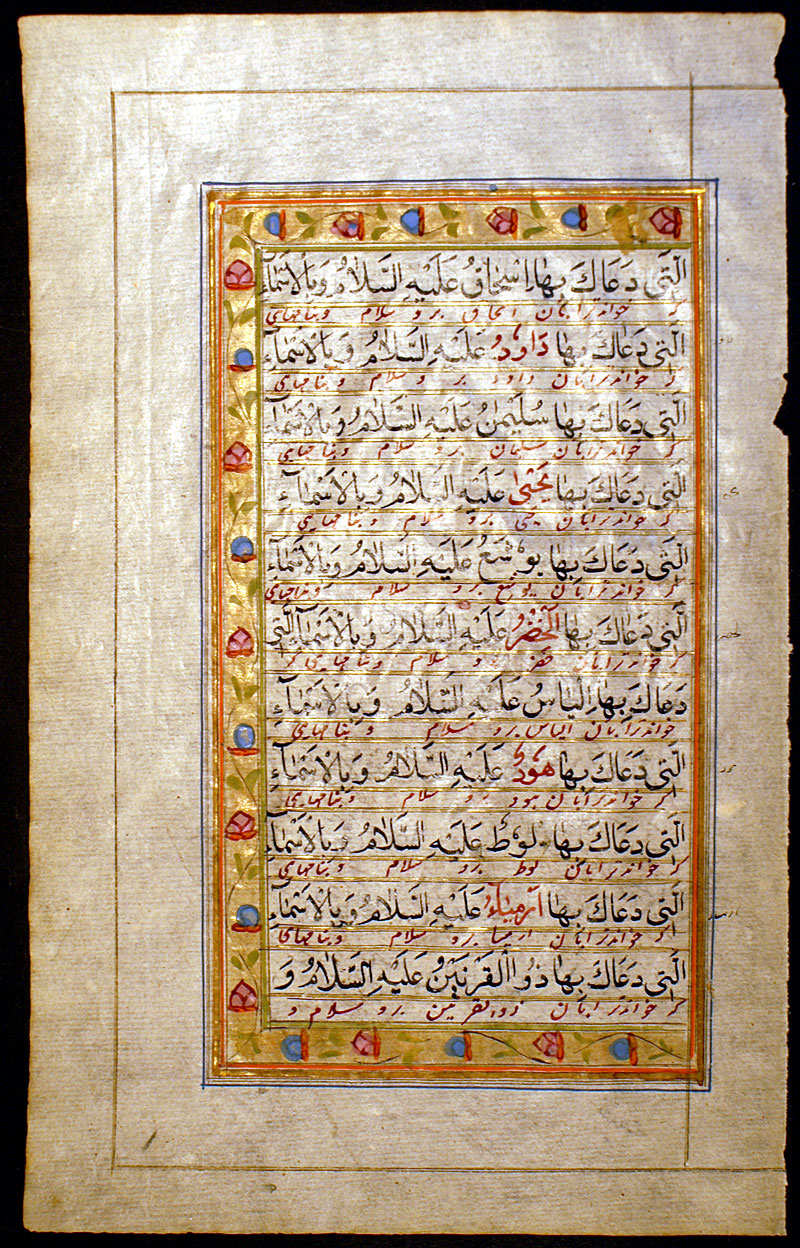 الَّتِي دَعَاكَ بِهَا اِسْحَاقُ عَلَيْهِ السَّلَامُ وَبِالْاَسْمَاءِ
که خواند ترا بآن اسحاق برو سلام و بنامهای
الَّتِي دَعَاكَ بِهَا دَاوُدُ عَلَيْهِ السَّلَامُ وَبِالْاَسْمَاءِ
که خواند ترا بآن داود برو سلام و بنامهای
الَّتِي دَعَاكَ بِهَا سُلَيْمٰنُ عَلَيْهِ السَّلَامُ وَبِالْاَسْمَاءِ
که خواند ترا بآن سلیمان برو سلام و بنامهای
الَّتِي دَعَاكَ بِهَا يَحْيٰى عَلَيْهِ السَّلَامُ وَبِالْاَسْمَاءِ
که خواند ترا بآن یحیی برو سلام و بنامهای
الَّتِي دَعَاكَ بِهَا يُوشَعُ عَلَيْهِ السَّلَامُ وَبِالْاَسْمَاءِ
که خواند ترا بآن یوشع برو سلام و بنامهای
الَّتِي دَعَاكَ بِهَا الْخِضْرُ عَلَيْهِ السَّلَامُ وَبِالْاَسْمَاءِ الَّتِي
که خواند ترا بآن خضر برو سلام و بنامهای که
دَعَاكَ بِهَا اِلْيَاسُ عَلَيْهِ السَّلَامُ وَبِالْاَسْمَاءِ
خواند ترا بآن الیاس برو سلام و بنامهای
الَّتِي دَعَاكَ بِهَا هُودُ عَلَيْهِ السَّلَامُ وَبِالْاَسْمَاءِ
که خواند ترا بآن هود برو سلام و بنامهای
الَّتِي دَعَاكَ بِهَا لُوطُ عَلَيْهِ السَّلَامُ وَبِالْاَسْمَاءِ
که خواند ترا بآن لوط برو سلام و بنامهای
الَّتِي دَعَاكَ بِهَا اَرْمِيَاءُ عَلَيْهِ السَّلَامُ وَبِالْاَسْمَاءِ
که خواند ترا بآن ارمیا برو سلام و بنامهای
الَّتِي دَعَاكَ بِهَا ذُوالْقَرْنَيْنِ عَلَيْهِ السَّلَامُ وَ
که خواند ترا بآن ذوالقرنین برو سلام و